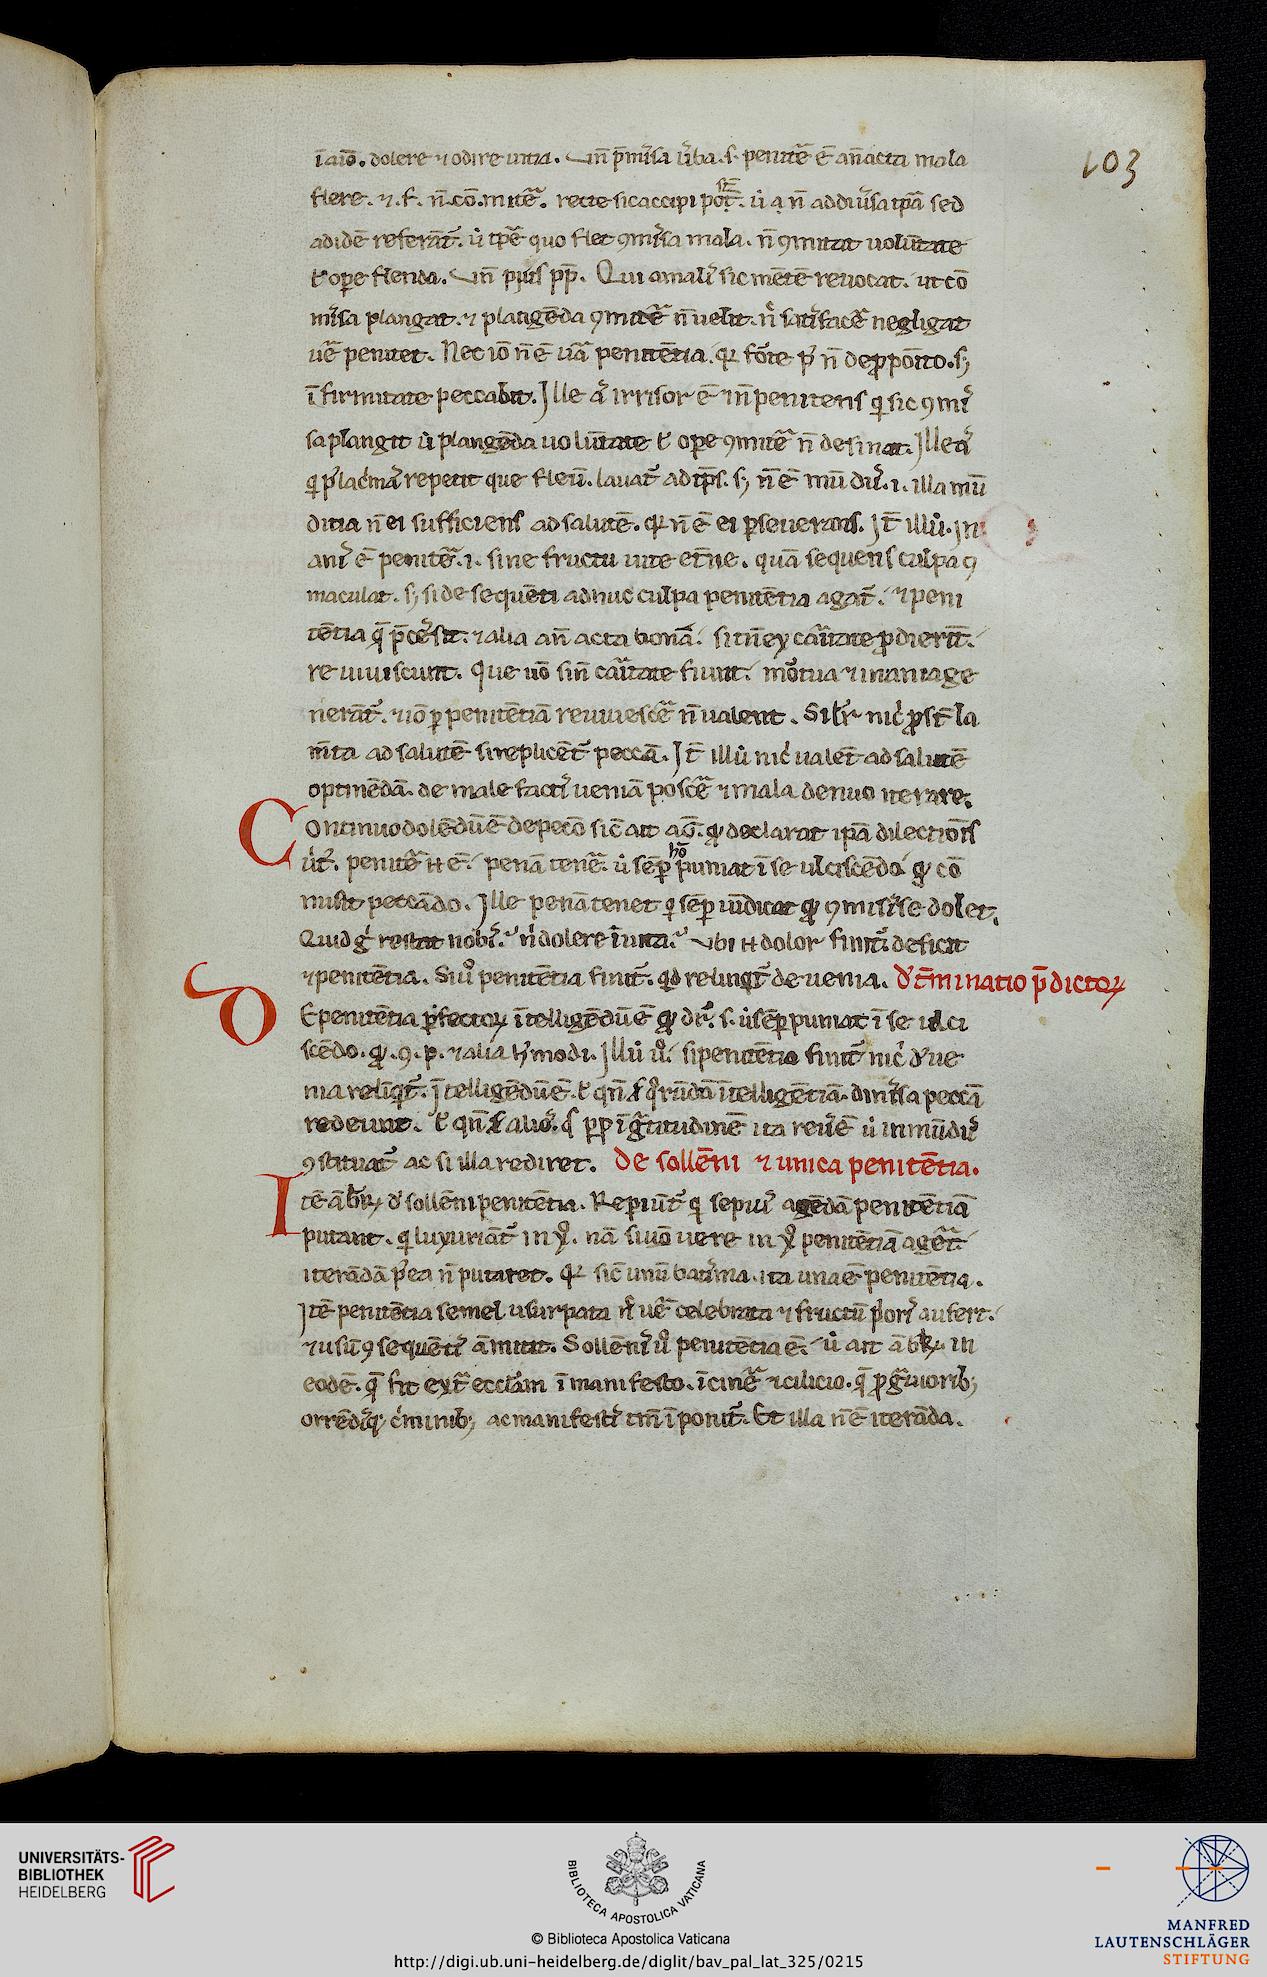 103
īaīo. dolere ⁊ odire uitia. Vn̄ p̄mis̄a ūba. s. penitē ē an̄acta mala
flere. ⁊. f. n̄. cō. mitē. recte sic accipi pōt. sc̄ ū a n̄ ad diūsa tp̄a sed
ad idē referāt̄. ū tp̄e quo flet ꝯmis̄a mala. n̄ ꝯmitat uolūtate
ł ope flenda. Vn̄ pp̄. Qui a mal' sic mētē reuocat. ut cō
mis̄a plangat. ⁊ plangēda ꝯmitē n̄ uelit. n̄ satisfacē negligat
uē penitet. Nec iō n̄ ē uā penitētia. qr̄ forte p' n̄ de ꝓpōito. sꝫ
ī firmitate peccabit. Ille ā irrisor ē ⁊ īn penitens q̄ sic ꝯmis̄
sa plangit ū plangēda uolūtate ł ope ꝯmitē n̄ desinat. Ille
q̄ p' lacmas repetit que fleū. lauat̄ ad tp̄s. sꝫ n̄ ē mūdus. i. illa mū
ditia n̄ ei sufficiens ad salutē. qr̄ n̄ ē ei ꝑseuerans. It̄ illū. In
anis ē penitē. i. sine fructu uite et̄ne. quā sequens culpa ꝯ
maculat. sꝫ si de sequēti adhuc culpa penitētia agat̄. ⁊ peni
tētia q̄ p̄cēsit. ⁊ alia an̄ acta bona. si tn̄ ex caritate ꝓdierūt.
reuiuiscunt. Que uō sin̄ caritate fiunt. mortua ⁊ inania ge
nerāt̄. ⁊ iō ꝑ penitētiā reuiuescē n̄ ualent. Silr nic' ꝓst̄ la
m̄ta ad salutē si replicēt̄ peccā. It̄ illū nic' ualet ad salutē
optinēdā. de male factis ueniā poscē ⁊ mala denuo iterare.
Continuo dolēdū ē de pecō sic̄ ait aḡ. qd declarat ip̄a dilectiōis
ūt̄. penitē .n. ē. penā tenē. ū sēꝑ hō puniat ī se ulciscēdo qd cō
misit peccādo. Ille penā tenet q̄ sēꝑ uīdicat qd ꝯmisis̄e dolet.
Quid g' restat nobis. n̄ dolere ī uita. Vbi .n. dolor finit̄ deficit
⁊ penitētia. Si ū penitētia finit̄. qd relinqt̄ de uenia. D't̄minatio p̄dictoꝝ
DE penitētia ꝑfectoꝝ ītelligēdū ē qd dr̄. s. ū sēꝑ puniat ī se ulci
scēdo. qd. ꝯ. p. ⁊ alia h' modi. Illū ū. si penitētia finit̄ nic' d' ue
nia reliqt̄. ītelligēdū ē. ł qn̄ s' q̄rūdā ītelligētiā. dimis̄a peccā
redeunt. ł qn̄ s' alios. s pp̄ īgtitudinē ita reus ē ū inmūdus
ꝯstituat̄ ac si illa rediret. De sollēni ⁊ unica penitētia.
Itē ābr̄ d' sollēni penitētia. Reperiūt̄ q̄ sepius agēdā penitētiā
putant. q̄ luxuriāt̄ in x̄. nā si uō uere in x̄ penitētiā agerēt
iterādā p'ea n̄ putarēt. qr̄ sic̄ unū batisma. ita una ē penitētia.
Itē penitētia semel usurpata n̄ uē celebrata ⁊ fructū p'oris aufert.
⁊ usū ꝯ sequētis āmitit. Sollēnis ū penitētia ē. ū ait ābr̄. in
eodē. q̄ fit ext̄ ecclam ī manifesto. ī cinē ⁊ cilicio. q̄ ꝓ guiorib;
orrēdisq; c'minib; ac manifestis tm̄ īponit̄. Et illa n̄ ē iterāda.
UNIVERSITÄTS-
BIBLIOTHEK
HEIDELBERG
BIBLIOTECA APOSTOLICA VATICANA
© Biblioteca Apostolica Vaticana
http://digi.ub.uni-heidelberg.de/diglit/bav_pal_lat_325/0215
MANFRED
LAUTENSCHLÄGER
STIFTUNG